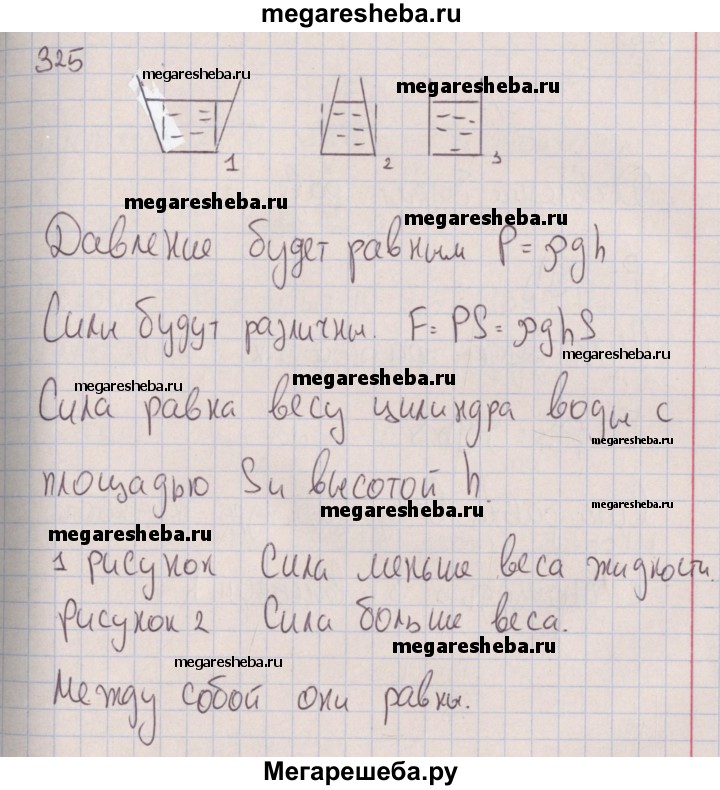 megaresheba.ru
325
megaresheba.ru
megaresheba.ru
1
2
3
megaresheba.ru
megaresheba.ru
Давление будет равным P = ρgh
Силы будут различны. F = PS = ρghS
megaresheba.ru
megaresheba.ru
megaresheba.ru
Сила равна весу цилиндра воды с
megaresheba.ru
площадью S и высотой h.
megaresheba.ru
megaresheba.ru
megaresheba.ru
1 рисунок Сила меньше веса жидкости.
рисунок 2 Сила больше веса.
megaresheba.ru
megaresheba.ru
Между собой они равны.
megaresheba.ru
Мегарешеба.ру